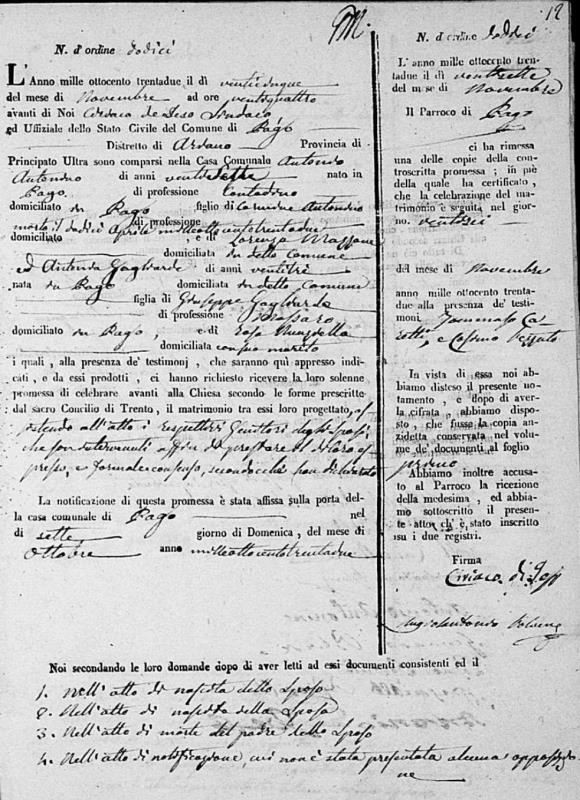 12
N. d'ordine dodici
L'Anno mille ottocento trentadue il dì venticinque
del mese di Novembre ad ore ventiquattro
avanti di Noi Ciriaco de Jeso Sindaco
ed Uffiziale dello Stato Civile del Comune di Pago
Distretto di Ariano Provincia di
Principato Ultra sono comparsi nella Casa Comunale Antonio
Antonino di anni ventisette nato in
Pago di professione Contadino
domiciliato in Pago figlio di Carmine Antonino
morto il dodici Aprile milleottocentotrentadue di professione
domiciliato e di Lorenza Mazzone
domiciliata in detto Comune
ed Antonia Gagliarde di anni ventitre
nata in Pago domiciliata in detto Comune
figlia di Giuseppe Gagliarde
di professione
domiciliato in Pago, e di Rosa
domiciliata con suo marito
i quali, alla presenza de' testimonj, che saranno quì appresso indi-
cati, e da essi prodotti, ci hanno richiesto ricevere la loro solenne
promessa di celebrare avanti alla Chiesa secondo le forme prescritte
dal sacro Concilio di Trento, il matrimonio tra essi loro progettato,
all'atto i rispettivi Genitori degli sposi,
che son intervenuti affin di prestare il di loro es
presso, e formale consenso, secondocchè han dichiarato
La notificazione di questa promessa è stata affissa sulla porta del-
la casa comunale di Pago nel
dì sette giorno di Domenica, del mese di
Ottobre anno milleottocentotrentadue
N. d'ordine dodici
L'anno mille ottocento tren-
tadue il dì ventisette
del mese di Novembre
Il Parroco di Pago
ci ha rimessa
una delle copie della con-
troscritta promessa; in piè
della quale ha certificato,
che la celebrazione del ma-
trimonio è seguita nel gior-
no. ventisei
del mese di Novembre
anno mille ottocento tren-
tadue alla presenza de' testi-
monj Tommaso Ca
, e Cosimo Pezzuto
In vista di essa noi ab-
biamo disteso il presente no-
tamento, e dopo di aver-
la cifrata, abbiamo dispo-
sto, che fusse la copia an-
zidetta conservata nel volu-
me de' documenti al foglio
primo
Abbiamo inoltre accusa-
to al Parroco la ricezione
della medesima, ed abbia-
mo sottoscritto il presen-
te atto, ch'è stato inscritto
su i due registri.
Firma
Ciriaco di
Noi secondando le loro domande dopo di aver letti ad essi documenti consistenti ed il
1. Nell'atto di nascita dello Sposo
2. Nell'atto di nascita della Sposa
3. Nell'atto di morte del padre dello Sposo
4. Nell'atto di notificazione, cui non è stata presentata alcuna opposizio
ne